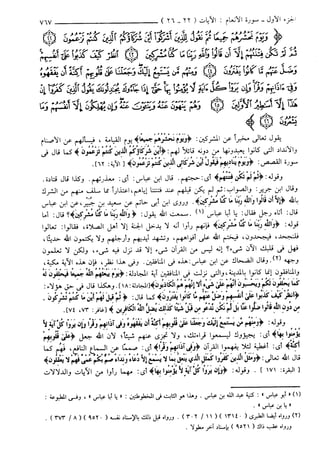 الجزء الأول - سورة الأنعام: الآيات ( ٢٢ - ٢٦ ) ٧٦٧
وَيَوْمَ نَحْشُرُهُمْ جَمِيعًا ثُمَّ نَقُولُ لِلَّذِينَ أَشْرَكُوا أَيْنَ شُرَكَاؤُكُمُ الَّذِينَ كُنتُمْ تَزْعُمُونَ
ثُمَّ لَمْ تَكُن فِتْنَتُهُمْ إِلَّا أَن قَالُوا وَاللَّهِ رَبِّنَا مَا كُنَّا مُشْرِكِينَ انظُرْ كَيْفَ كَذَبُوا عَلَىٰ أَنفُسِهِمْ
وَضَلَّ عَنْهُم مَّا كَانُوا يَفْتَرُونَ وَمِنْهُم مَّن يَسْتَمِعُ إِلَيْكَ وَجَعَلْنَا عَلَىٰ قُلُوبِهِمْ أَكِنَّةً أَن يَفْقَهُوهُ
وَفِي آذَانِهِمْ وَقْرًا وَإِن يَرَوْا كُلَّ آيَةٍ لَّا يُؤْمِنُوا بِهَا حَتَّىٰ إِذَا جَاءُوكَ يُجَادِلُونَكَ يَقُولُ الَّذِينَ كَفَرُوا إِنْ
هَٰذَا إِلَّا أَسَاطِيرُ الْأَوَّلِينَ وَهُمْ يَنْهَوْنَ عَنْهُ وَيَنْأَوْنَ عَنْهُ وَإِن يُهْلِكُونَ إِلَّا أَنفُسَهُمْ وَمَا
يَشْعُرُونَ
يقول تعالى مخبراً عن المشركين: ﴿وَيَوْمَ نَحْشُرُهُمْ جَمِيعًا﴾ يوم القيامة ، فيسألهم عن الأصنام
والأنداد التي كانوا يعبدونها من دونه قائلاً لهم: ﴿أَيْنَ شُرَكَاؤُكُمُ الَّذِينَ كُنتُمْ تَزْعُمُونَ﴾ كما قال في
سورة القصص: ﴿وَيَوْمَ يُنَادِيهِمْ فَيَقُولُ أَيْنَ شُرَكَائِيَ الَّذِينَ كُنتُمْ تَزْعُمُونَ﴾ [الآية: ٦٢].
وقوله: ﴿ثُمَّ لَمْ تَكُن فِتْنَتُهُمْ﴾ أي: حجتهم. قال ابن عباس: أي: معذرتهم. وكذا قال قتادة.
وقال ابن جرير: والصواب: ثم لم يكن قيلهم عند فتنتنا إياهم، اعتذاراً مما سلف منهم من الشرك
بالله ﴿إِلَّا أَن قَالُوا وَاللَّهِ رَبِّنَا مَا كُنَّا مُشْرِكِينَ﴾. وروى ابن أبي حاتم عن سعيد بن جبير، عن ابن عباس
قال: أتاه رجل فقال: يا أبا عباس (١) سمعت الله يقول: ﴿وَاللَّهِ رَبِّنَا مَا كُنَّا مُشْرِكِينَ﴾؟ قال: أما
قوله: ﴿وَاللَّهِ رَبِّنَا مَا كُنَّا مُشْرِكِينَ﴾ فإنهم رأوا أنه لا يدخل الجنة إلا أهل الصلاة، فقالوا: تعالوا
فلنجحد، فيجحدون، فيختم الله على أفواههم، وتشهد أيديهم وأرجلهم ولا يكتمون الله حديثاً،
فهل في قلبك الآن شيء؟ إنه ليس من القرآن شيء إلا قد نزل فيه شيء، ولكن لا تعلمون
وجهه (٢). وقال الضحاك عن ابن عباس: هذه في المنافقين. وفي هذا نظر، فإن هذه الآية مكية،
والمنافقون إنما كانوا بالمدينة، والتي نزلت في المنافقين آية المجادلة: ﴿يَوْمَ يَبْعَثُهُمُ اللَّهُ جَمِيعًا فَيَحْلِفُونَ لَهُ
كَمَا يَحْلِفُونَ لَكُمْ وَيَحْسَبُونَ أَنَّهُمْ عَلَىٰ شَيْءٍ أَلَا إِنَّهُمْ هُمُ الْكَاذِبُونَ﴾ [المجادلة: ١٨]. وهكذا قال في حق هؤلاء:
﴿انظُرْ كَيْفَ كَذَبُوا عَلَىٰ أَنفُسِهِمْ وَضَلَّ عَنْهُم مَّا كَانُوا يَفْتَرُونَ﴾ كما قال: ﴿ثُمَّ قِيلَ لَهُمْ أَيْنَ مَا كُنتُمْ تُشْرِكُونَ
مِن دُونِ اللَّهِ قَالُوا ضَلُّوا عَنَّا بَل لَّمْ نَكُن نَّدْعُو مِن قَبْلُ شَيْئًا كَذَٰلِكَ يُضِلُّ اللَّهُ الْكَافِرِينَ﴾ [غافر: ٧٣، ٧٤].
وقوله: ﴿وَمِنْهُم مَّن يَسْتَمِعُ إِلَيْكَ وَجَعَلْنَا عَلَىٰ قُلُوبِهِمْ أَكِنَّةً أَن يَفْقَهُوهُ وَفِي آذَانِهِمْ وَقْرًا وَإِن يَرَوْا كُلَّ آيَةٍ لَّا
يُؤْمِنُوا بِهَا﴾ أي: يجيؤوك ليسمعوا قراءتك، ولا تجزي عنهم شيئاً؛ لأن الله جعل ﴿عَلَىٰ قُلُوبِهِمْ
أَكِنَّةً﴾ أي: أغطية لئلا يفقهوا القرآن ﴿وَفِي آذَانِهِمْ وَقْرًا﴾ أي: صمماً عن السماع النافع، فهم كما
قال الله تعالى: ﴿وَمَثَلُ الَّذِينَ كَفَرُوا كَمَثَلِ الَّذِي يَنْعِقُ بِمَا لَا يَسْمَعُ إِلَّا دُعَاءً وَنِدَاءً صُمٌّ بُكْمٌ عُمْيٌ فَهُمْ لَا يَعْقِلُونَ﴾
[البقرة: ١٧١]. وقوله: ﴿وَإِن يَرَوْا كُلَّ آيَةٍ لَّا يُؤْمِنُوا بِهَا﴾ أي: مهما رأوا من الآيات والدلالات
(١) «أبو عباس»: كنية عبد الله بن عباس. وهذا هو الثابت في المخطوطتين: «يا أبا عباس»، وفي المطبوعة:
«يا بن عباس».
(٢) ورواه أيضاً الطبري (١٣١٤٠) (١١ / ٣٠٢). ورواه قبل ذلك بالإسناد نفسه (٩٥٢٠) (٨ / ٣٧٣).
ورواه عقب ذاك (٩٥٢١) بإسناد آخر مطولا.